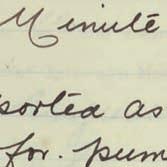 Minute
ported as
for. pum